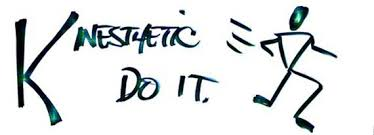 KINESTHETIC
DO IT.